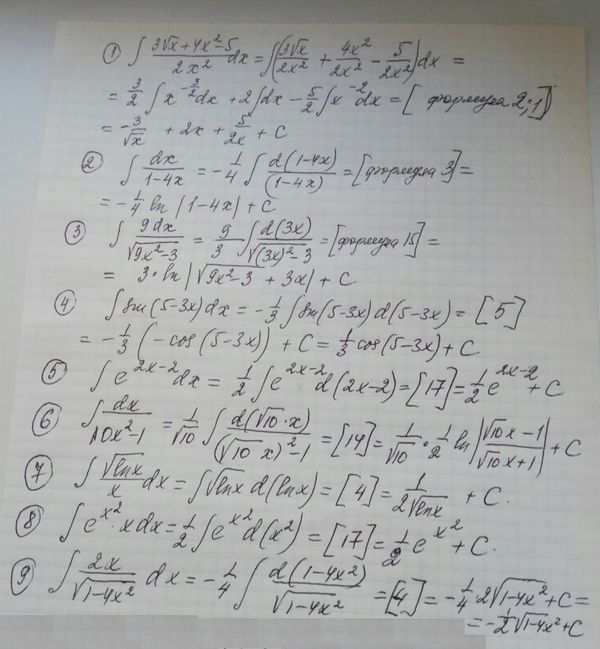 ① ∫ (3√x+4x²-5)/(2x²) dx = ∫(3√x/2x² + 4x²/2x² - 5/2x²)dx =
= 3/2 ∫ x^(-3/2) dx + 2∫dx - 5/2 ∫ x^(-2) dx = [ формула 2;1 ]
= -3/√x + 2x + 5/2x + C
② ∫ dx/(1-4x) = -1/4 ∫ d(1-4x)/(1-4x) = [формула 3] =
= -1/4 ln|1-4x| + C
③ ∫ 9dx/√(9x²-3) = 9/3 ∫ d(3x)/√((3x)²-3) = [формула 15] =
= 3·ln|√(9x²-3) + 3x| + C
④ ∫sin(5-3x)dx = -1/3 ∫sin(5-3x)d(5-3x) = [5]
= -1/3 (-cos(5-3x)) + C = 1/3 cos(5-3x) + C
⑤ ∫e^(2x-2) dx = 1/2 ∫e^(2x-2) d(2x-2) = [17] = 1/2 e^(2x-2) + C
⑥ ∫ dx/(10x²-1) = 1/√10 ∫ d(√10·x)/((√10 x)²-1) = [14] = 1/√10 · 1/2 ln|(√10x-1)/(√10x+1)| + C
⑦ ∫ √lnx/x dx = ∫√lnx d(lnx) = [4] = 1/(2√lnx) + C.
⑧ ∫e^(x²)·xdx = 1/2 ∫e^(x²) d(x²) = [17] = 1/2 e^(x²) + C.
⑨ ∫ 2x/√(1-4x²) dx = -1/4 ∫ d(1-4x²)/√(1-4x²) = [4] = -1/4·2√(1-4x²) + C =
= -1/2 √(1-4x²) + C